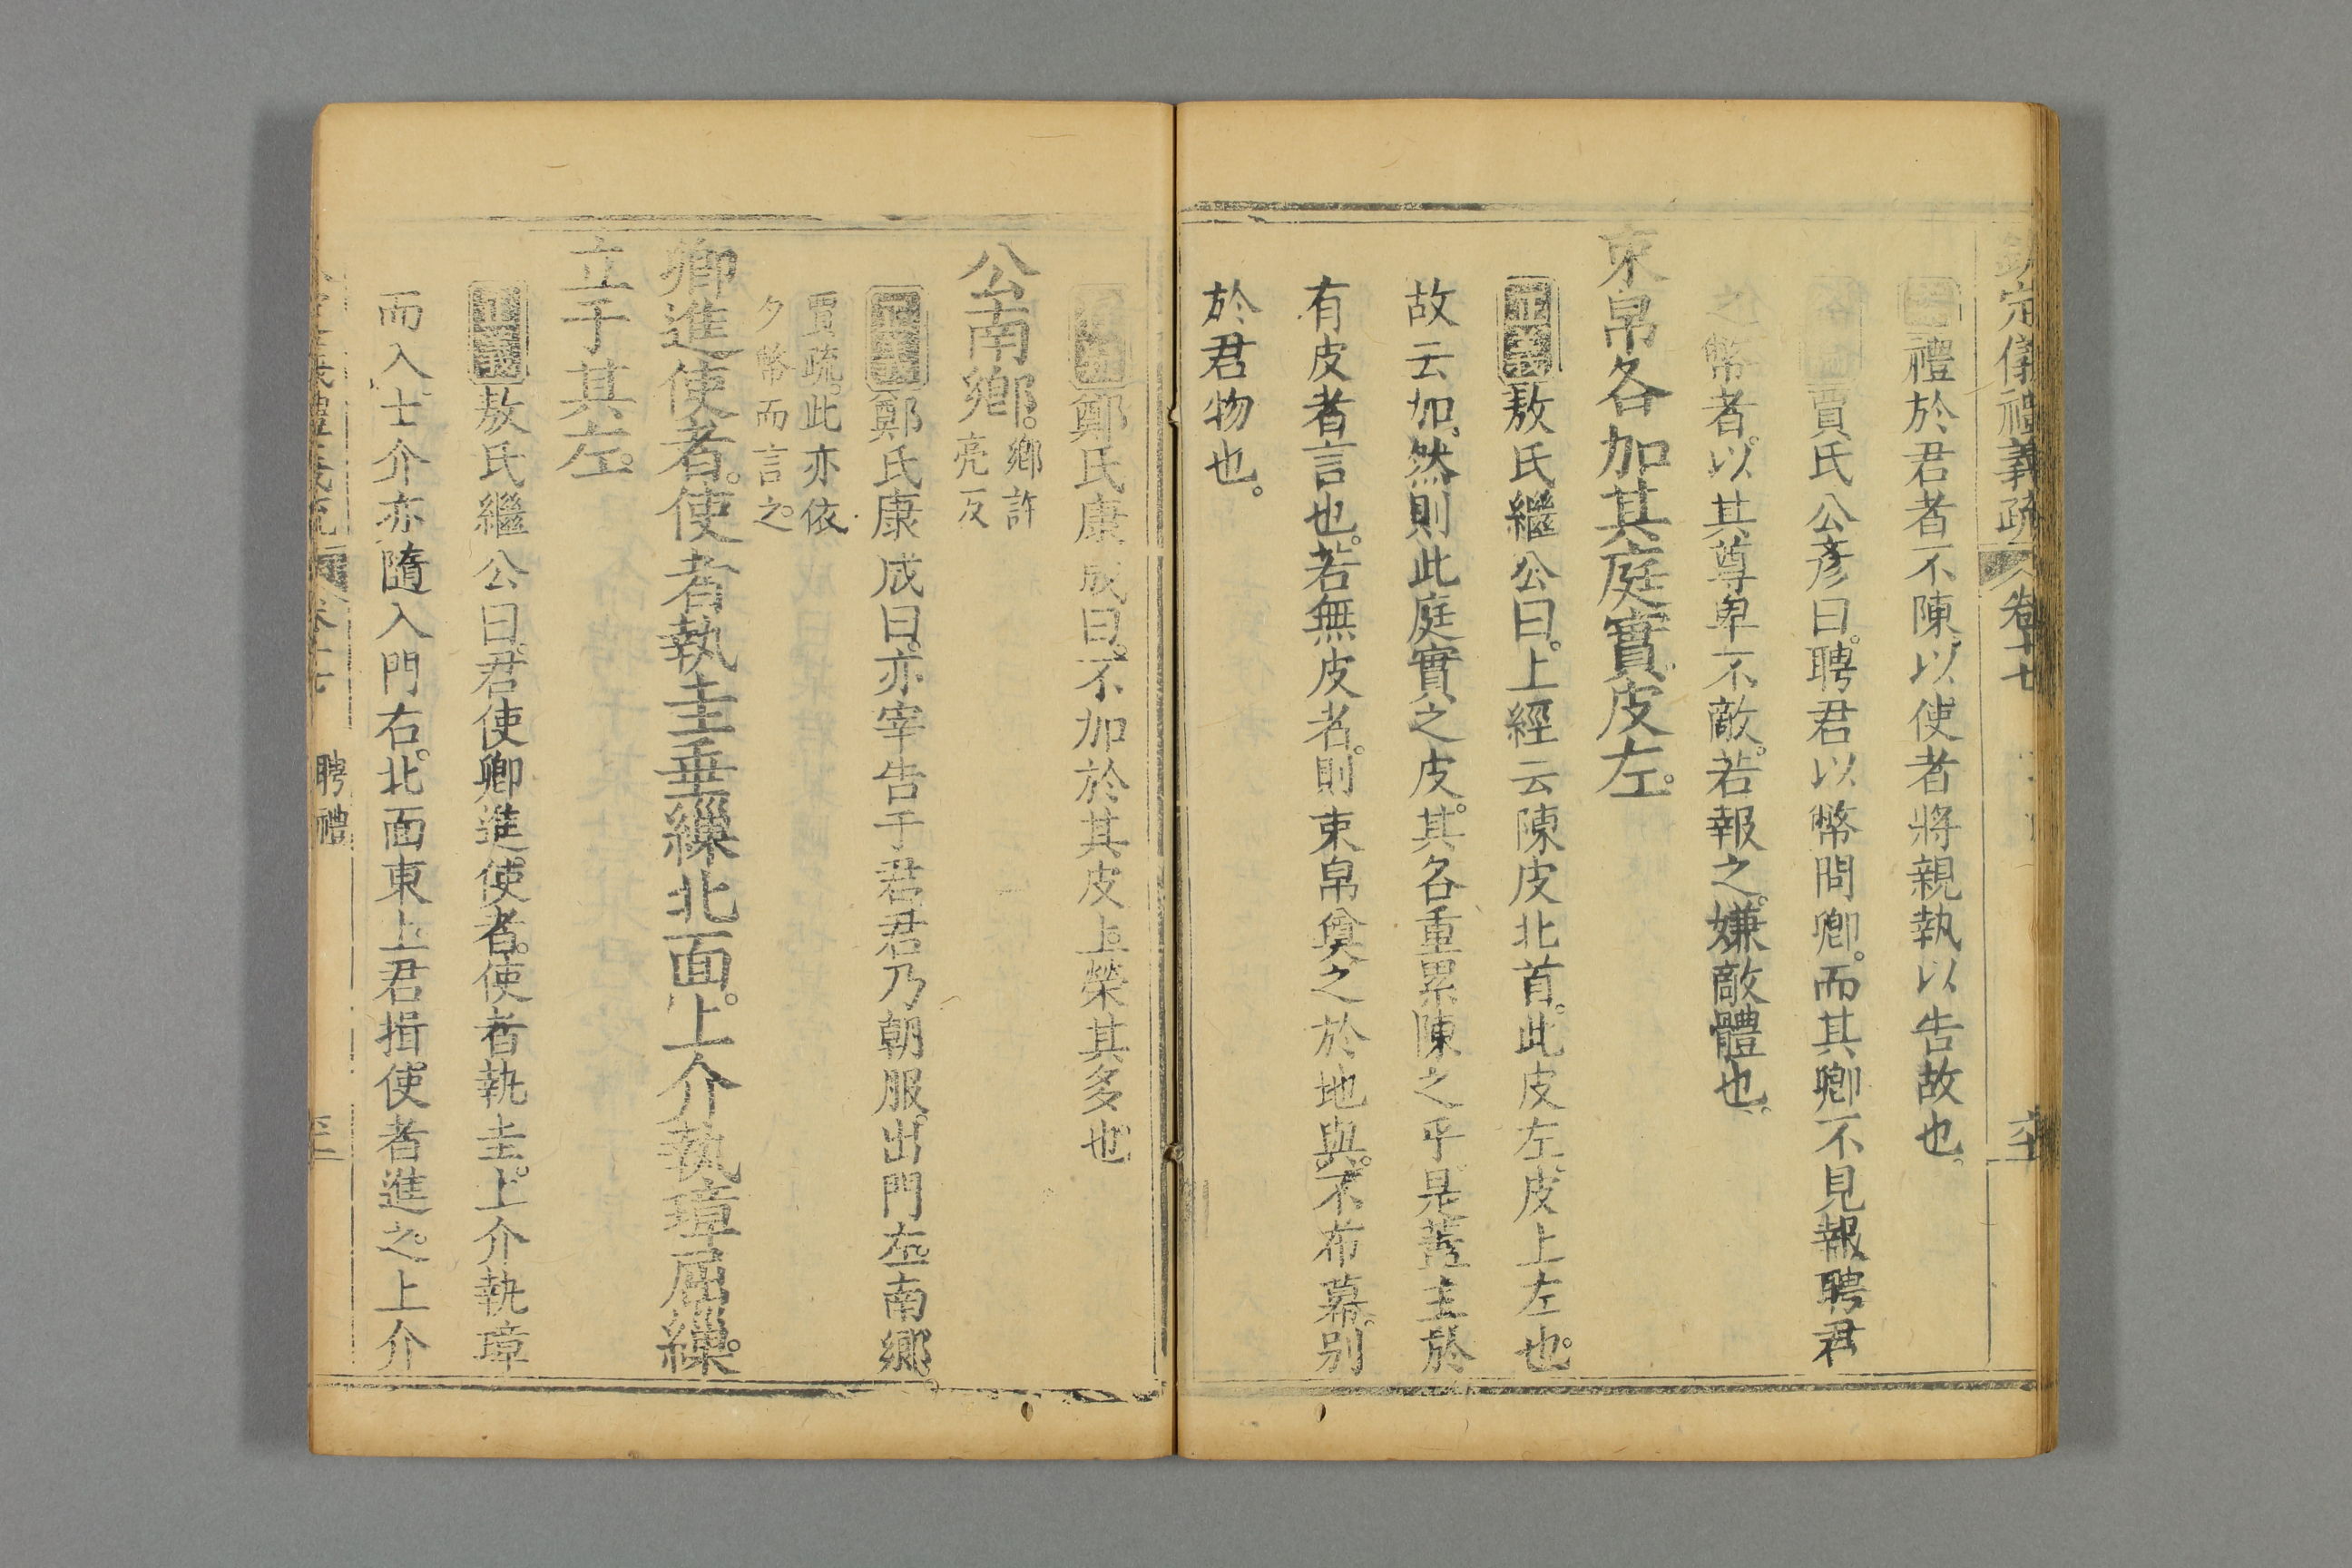 欽定儀禮義疏 卷十七
禮於君者不陳以使者將親執以告故也
賈氏公彥曰聘君以幣問卿而其卿不見報聘君
之幣者以其尊卑不敵若報之嫌敵體也
束帛各加其庭實皮左
正義敖氏繼公曰上經云陳皮北首此皮左皮上左也
故云加然則此庭實之皮其各重累陳之乎是蓋主於
有皮者言也若無皮者則束帛奠之於地與不布幕別
於君物也
鄭氏康成曰不加於其皮上榮其多也
公南鄉鄉許
亮反
正義鄭氏康成曰亦宰告于君君乃朝服出門左南鄉
賈疏此亦依
夕幣而言之
卿進使者使者執圭垂繅北面上介執璋屈繅
立于其左
正義敖氏繼公曰君使卿進使者使者執圭上介執璋
而入士介亦隨入門右北面東上君揖使者進之上介
聘禮